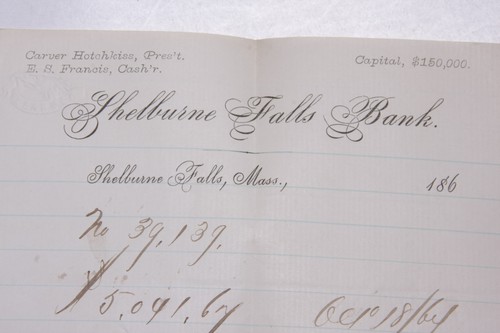 Carver Hotchkiss, Pres't.
Capital, $150,000.
E. S. Francis, Cash'r.
Shelburne Falls Bank.
Shelburne Falls, Mass., 186
No 39,139,
$5,041,67 Oct 18/64